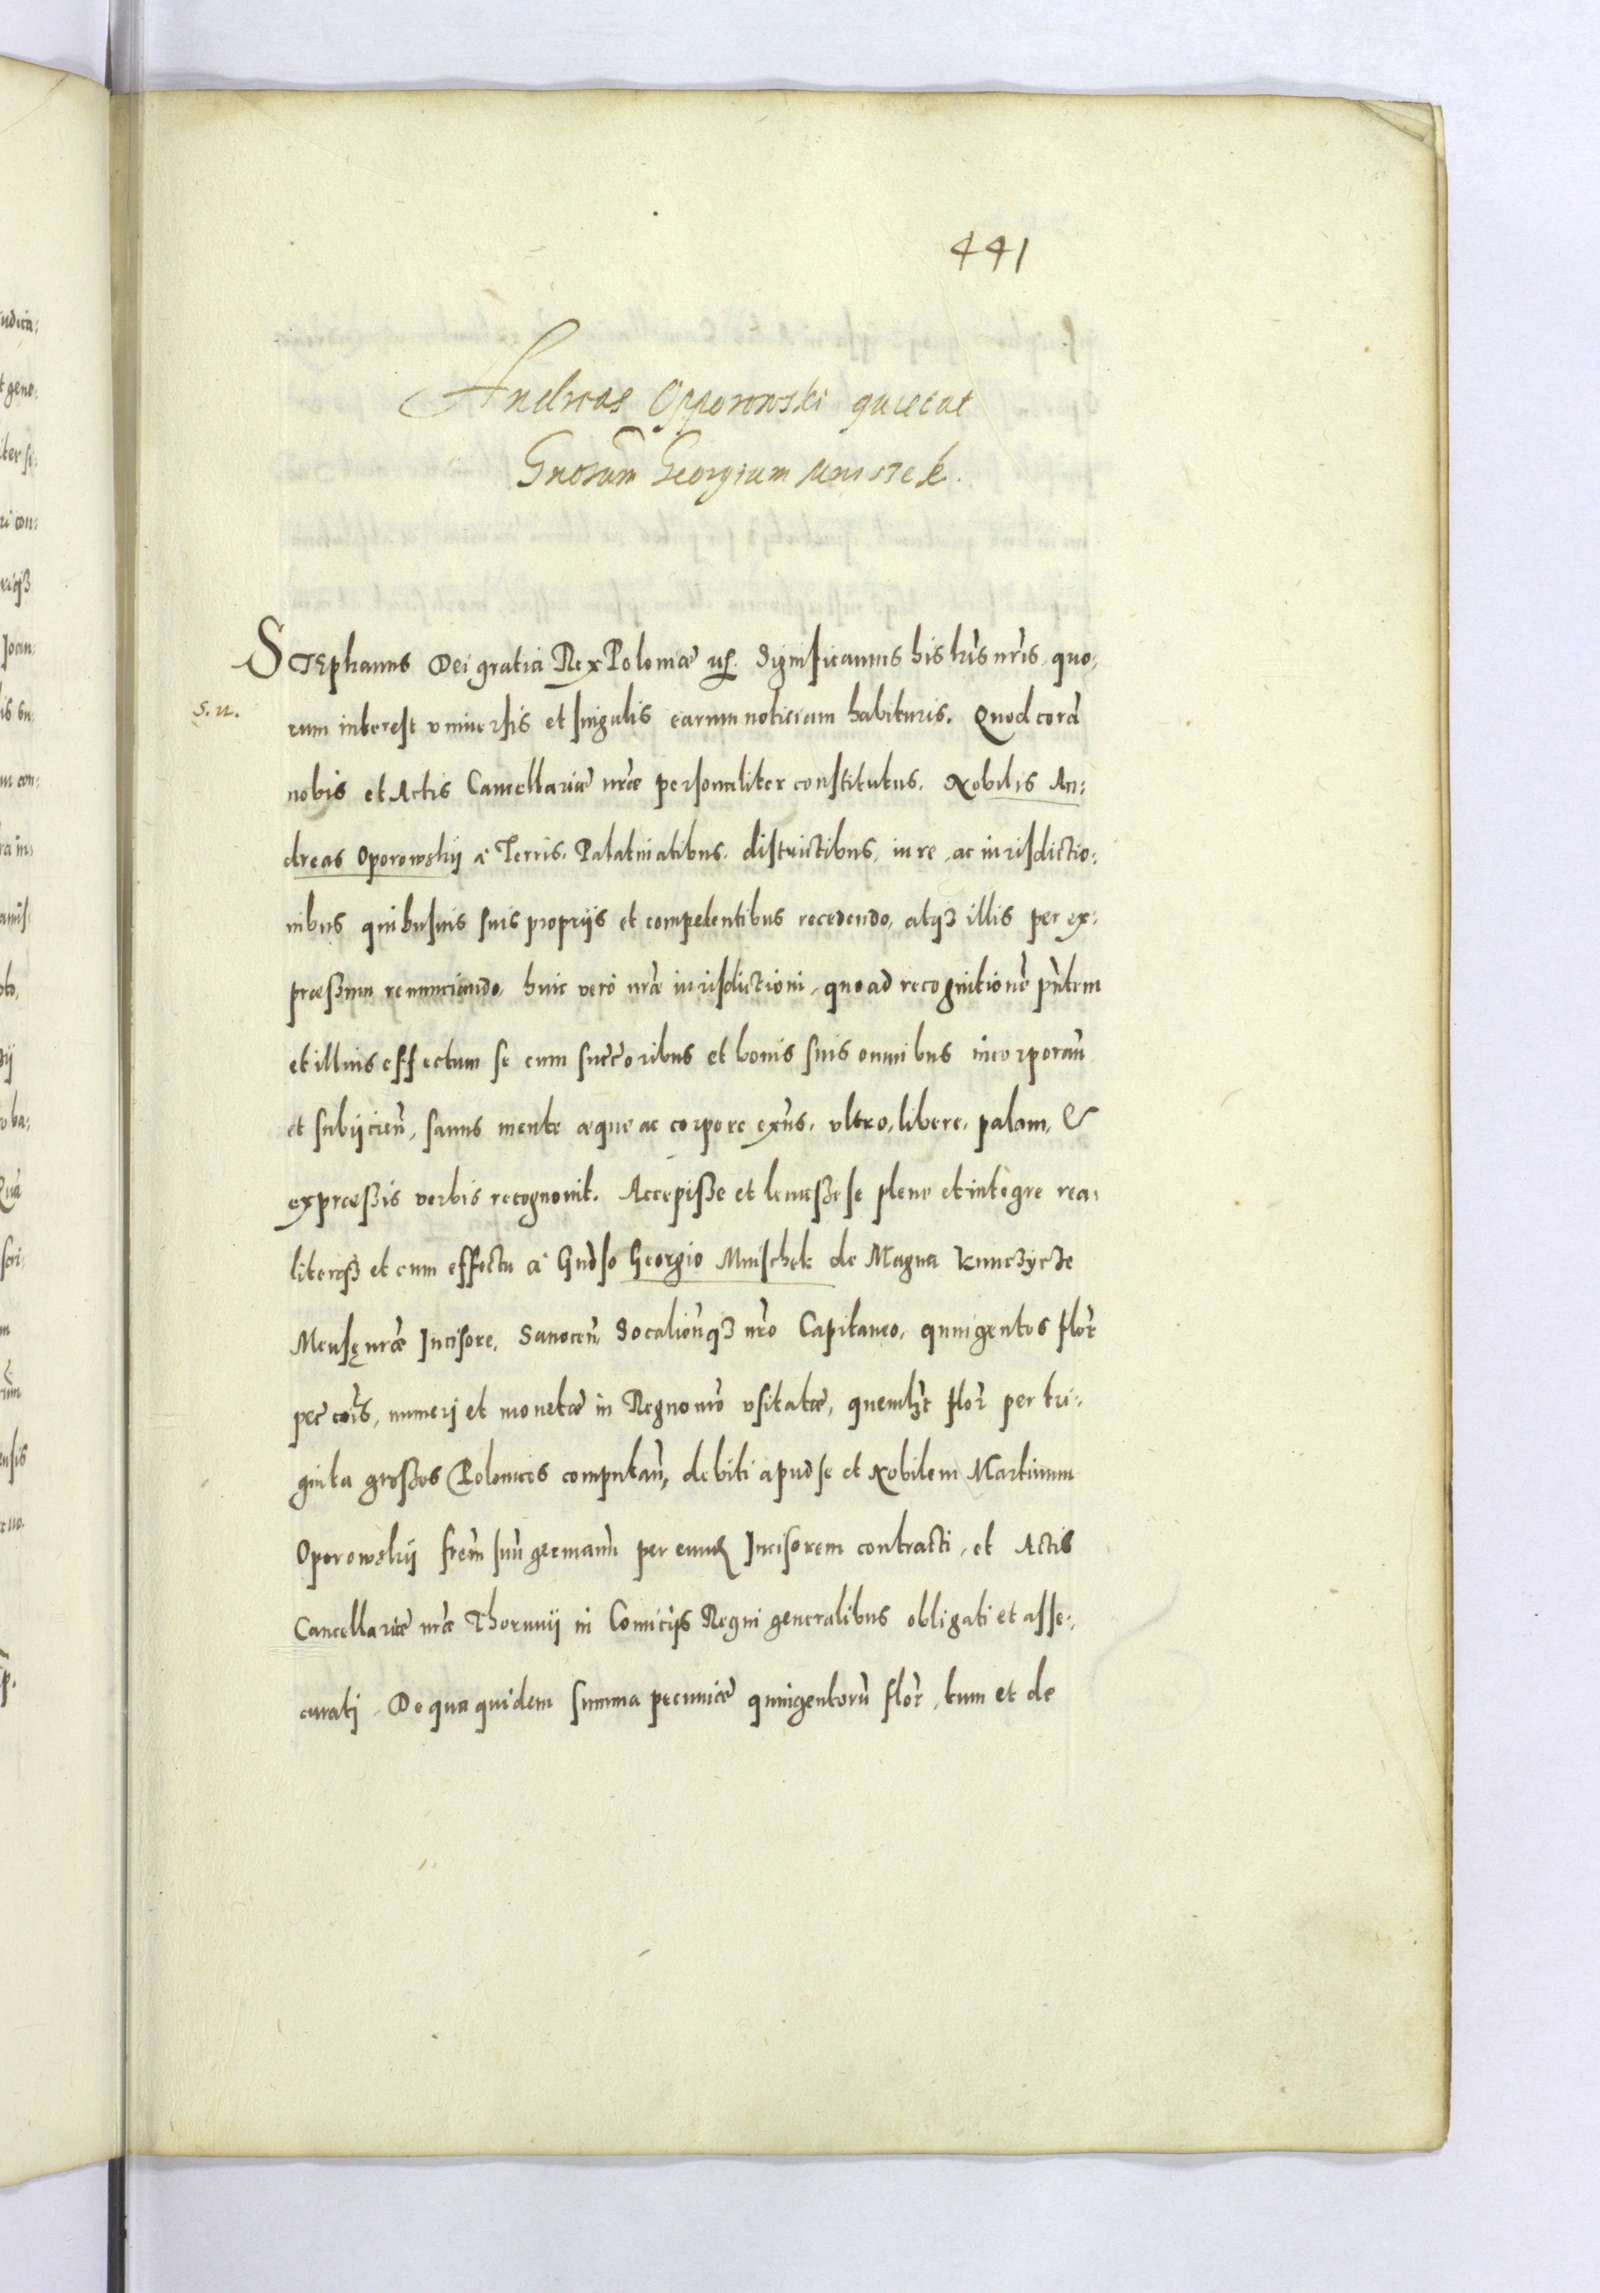 441
Andreas Opporowski quietat
Gnosum Georgium Mniszek.
Stephanus Dei gratia Rex Poloniæ etc. Significamus his lris nris, quo:
s. n.
rum interest vniuersis et singulis earum noticiam habituris. Quod corã
nobis et Actis Cancellariæ nræ personaliter constitutus. Nobilis An:
dreas Oporowskij a Terris. Palatinatibus. districtibus, iure, ac iurisdictio:
nibus quibusuis suis proprijs et competentibus recedendo, atqз illis per ex:
præssum renunciando, huic vero nræ iurisdictioni, quo ad recognitionẽ pñtem
et illius effectum se cum succoribus et bonis suis omnibus incorporañ
et subijcieñ, sanus mente æque ac corpore exñs, vltro, libere, palam, &
expræssis verbis recognouit. Accepisse et leuasse se plene et integre rea:
literqз et cum effectu a Gndso Georgio Mnischek de Magna Kunczycze
Mensę nræ Incisore, Sanoceñ Socalieñqз nro Capitaneo, quingentos flor
pec cois, numeri et monetæ in Regno nro vsitatæ, quemlзt flor per tri:
ginta grossos Polonicos computañ, debiti apud se et Nobilem Martinum
Oporowskij frem suũ germanũ per eund Incisorem contracti, et Actis
Cancellariæ nræ Thorunij in Comicijs Regni generalibus obligati et asse:
curati. De qua quidem summa pecuniæ quingentorũ flor, tum et de